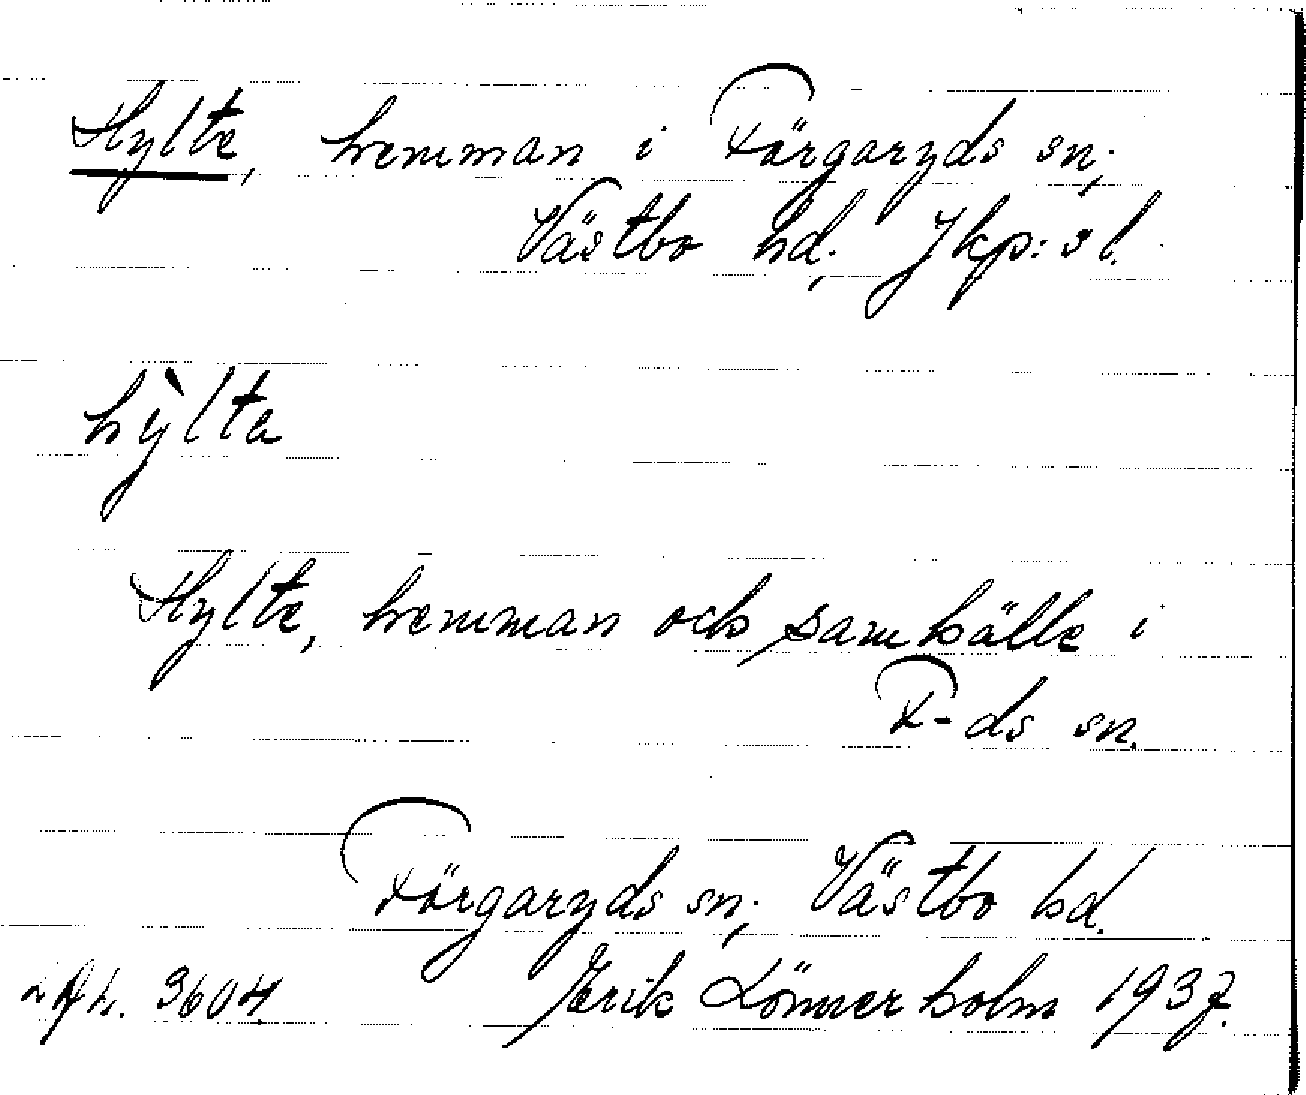 Hylte, hemman i Färgaryds sn;
Västbo hd; Jkp:s l.
hỳlta
Hylte, hemman och samhälle i
F-ds sn.
Färgaryds sn; Västbo hd.
3604 Erik Lönnerholm 1937.